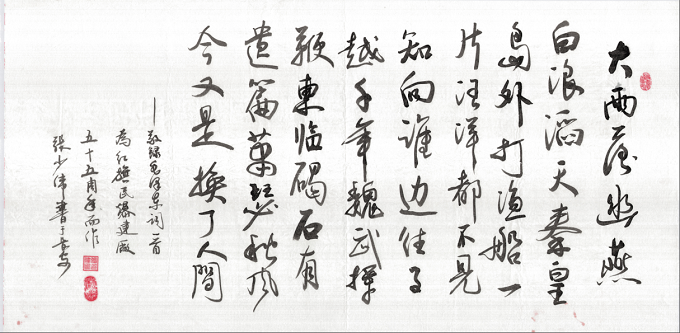 大雨落幽燕
白浪滔天秦皇
島外打漁船一
片汪洋都不見
知向誰边往事
越千年魏武揮
鞭東临碣石有
遺篇蕭瑟秋风
今又是换了人間
敬録毛泽东词一首
為红旗民爆建厰
五十五周年而作
張少伟書于